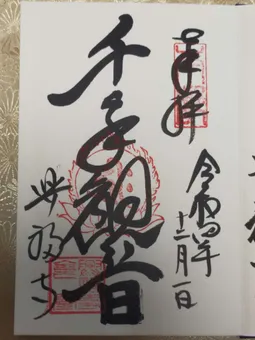 奉拝
令和四年
十二月一日
千手観音
興福寺